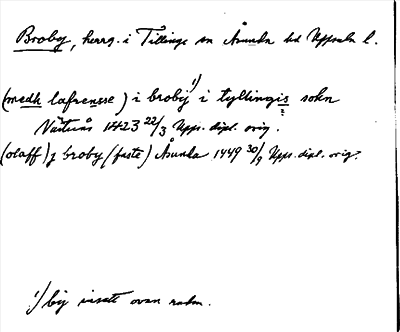 Broby, herrg. i Tillinge sn Åsunda hd Uppsala l.
(medh lafrensse) i broby ¹) i tyllingis sokn
Västerås 1423 22/3 Upps. dipl. orig.
(olaff) j broby (faste) Åsunda 1449 30/9 Upps. dipl. orig.
¹) by insatt ovan raden.